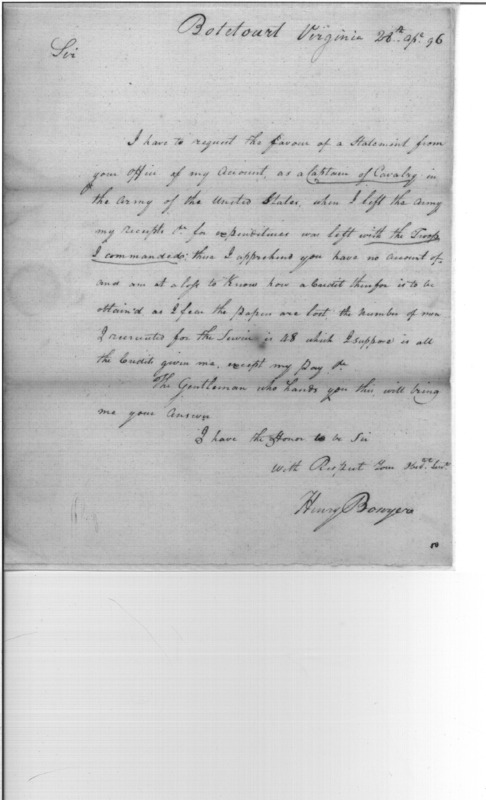 Botetourt Virginia 28th Apr. 96
Sir
I have to request the favour of a Statement from
your Office of my Account, as a Captain of Cavalry in
the Army of the United States, when I left the Army
my receipts &c for expenditures was left with the Troop
I commanded; those I apprehend you have no Amount of
and am at a loss to Know how a Credit therefor is to be
obtain'd as I fear the papers are lost the number of men
I recruited for the Service is 48 which I suppose is all
the Credit given me, except my Pay &c
The Gentleman who hands you this will bring
me your answer
I have the Honor to be Sir
With Respect Your Obed. Serv.
Henry Bowyer